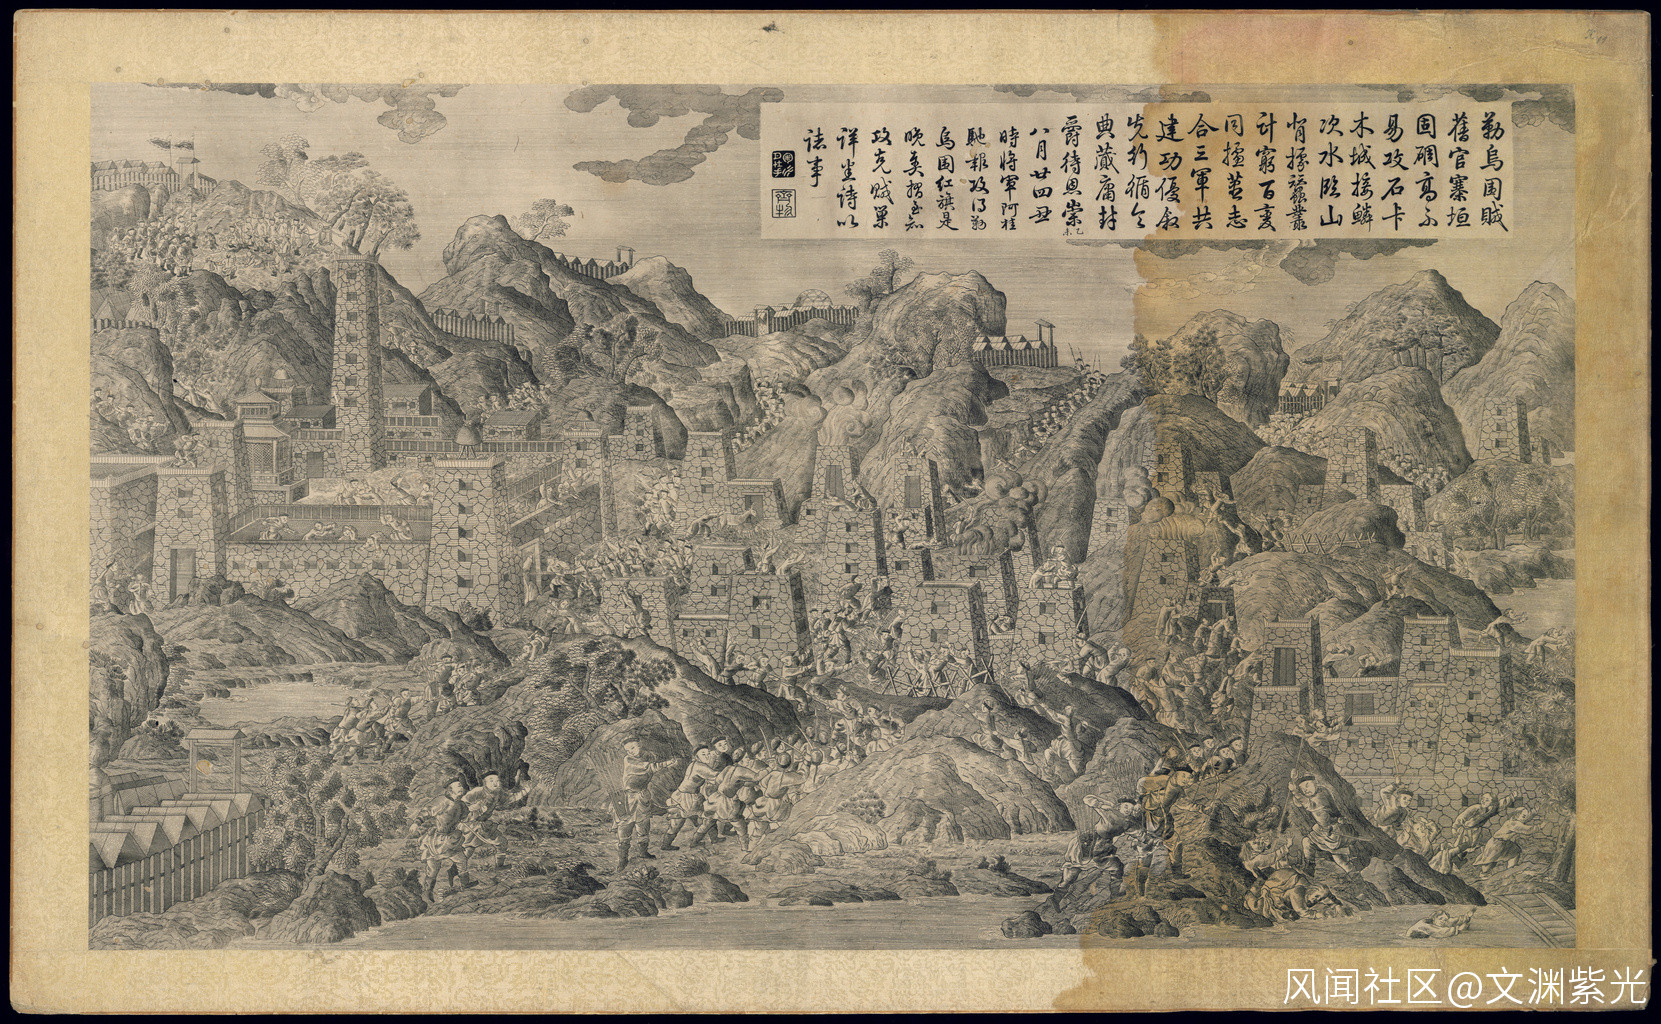 勒烏圍賊
舊官寨垣
固碉高不
易攻石卡
木城接鱗
次水臨山
背據蠶叢
計窮百變
同志
合三軍共
建功優敘
先行循令
典蕆庸封
爵待恩崇乙未
八月廿四丑
時將軍阿桂
馳報攻得勒
烏圍紅旗是
晚奏至知
攻克賊巢
詳詩以
誌事
风闻社区@文渊紫光